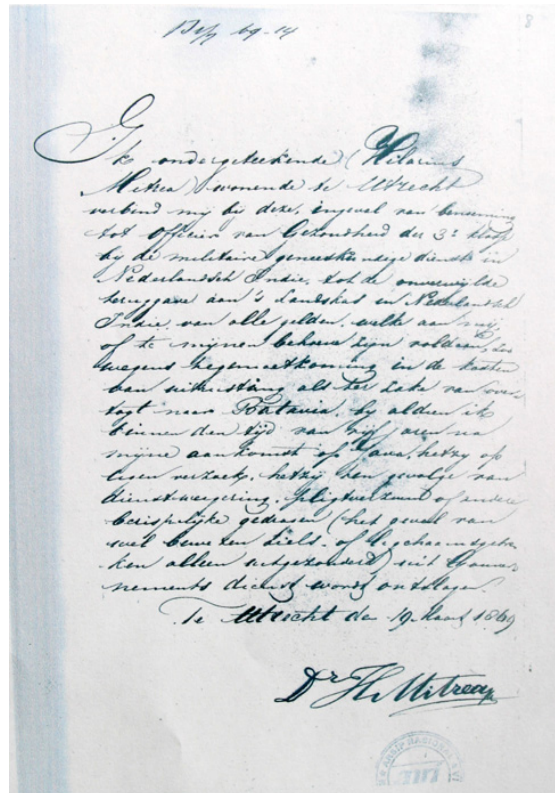 Bijl 69-14
8
Ik ondergeteekende (Hilarius
Mitrea) wonende te Utrecht
verbind mij bij deze, ingeval van benoeming
tot officier van Gezondheid der 3e klasse
bij de militaire geneeskundige dienst in
Nederlandsch Indie, tot de onverwijlde
teruggave aan 's Landskas in Nederlandsch
Indie, van alle gelden, welke aan mij,
of te mijnen behoeve zijn voldaan, zoo
wegens tegemoetkoming in de kosten
van uitrusting als ter zake van over-
togt naar Batavia, bij aldien ik
binnen den tijd van vijf jaren na
mijne aankomst op Java, hetzy op
eigen verzoek, hetzy ten gevolge van
dienstweigering, pligtverzuim of andere
berispelijke gedragen (het geval van
wel bewezen ziels- of ligchaamsgebre-
ken alleen uitgezonderd) uit Gouver-
nements dienst word ontslagen.
Te Utrecht de 19 Maart 1869
Dr H. Mitrea